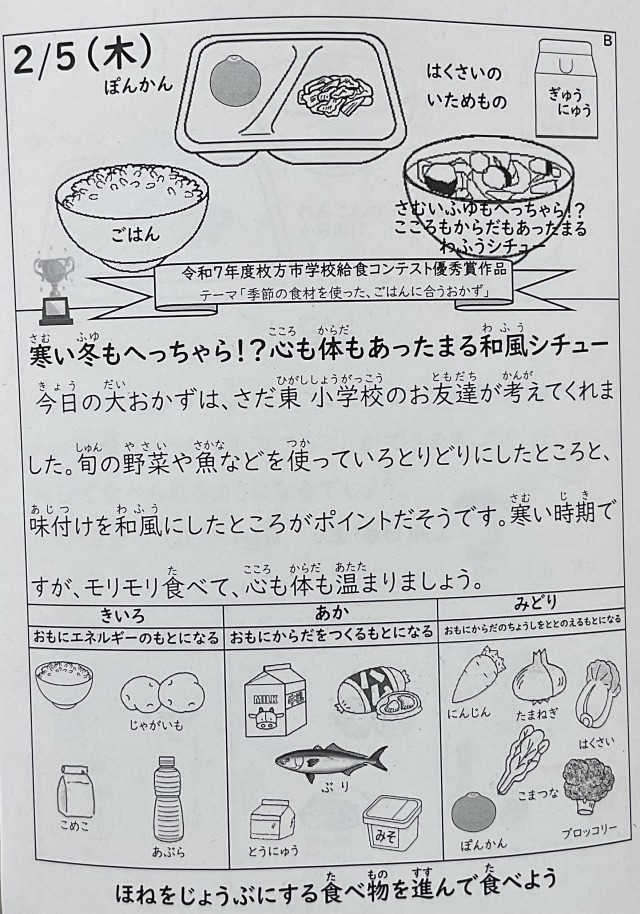 2/5(木)
B
ぽんかん
はくさいの
いためもの
ぎゅう
にゅう
ごはん
さむいふゆもへっちゃら!?
こころもからだもあったまる
わふうシチュー
令和7年度枚方市学校給食コンテスト優秀賞作品
テーマ「季節の食材を使った、ごはんに合うおかず」
さむ ふゆ こころ からだ わふう
寒い冬もへっちゃら!?心も体もあったまる和風シチュー
きょう だい ひがししょうがっこう ともだち かんが
今日の大おかずは、さだ東小学校のお友達が考えてくれま
しゅん やさい さかな つか
した。旬の野菜や魚などを使っていろとりどりにしたところと、
あじつ わふう さむ じき
味付けを和風にしたところがポイントだそうです。寒い時期で
た こころ からだ あたた
すが、モリモリ食べて、心も体も温まりましょう。
きいろ あか みどり
おもにエネルギーのもとになる おもにからだをつくるもとになる おもにからだのちょうしをととのえるもとになる
MILK
じゃがいも
にんじん
たまねぎ
はくさい
ぶり
こまつな
こめこ
あぶら
とうにゅう
みそ
ぽんかん
ブロッコリー
た もの すす た
ほねをじょうぶにする食べ物を進んで食べよう